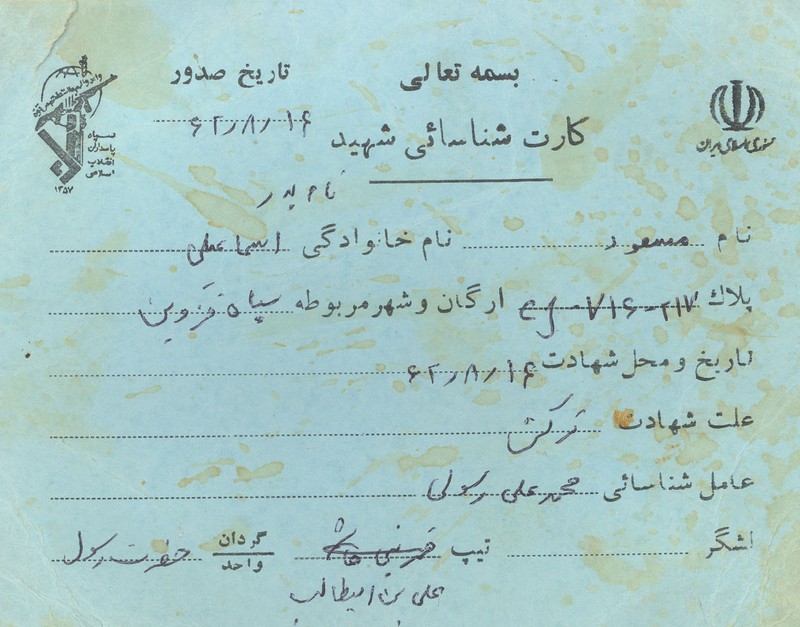 بسمه تعالی
تاریخ صدور ۶۲/۸/۱۶
کارت شناسائی شهید
جمهوری اسلامی ایران
سپاه
پاسداران
انقلاب
اسلامی
۱۳۵۷
نام پدر
نام مسعود نام خانوادگی اسماعیلی
پلاک ۲۱۷-۷۱۶ ارگان و شهر مربوطه سپاه قزوین
تاریخ و محل شهادت ۶۲/۸/۱۶
علت شهادت ترکش
عامل شناسائی محمد علی رسولی
لشگر تیپ گردان حضرت رسول
واحد
علی بن ابیطالب